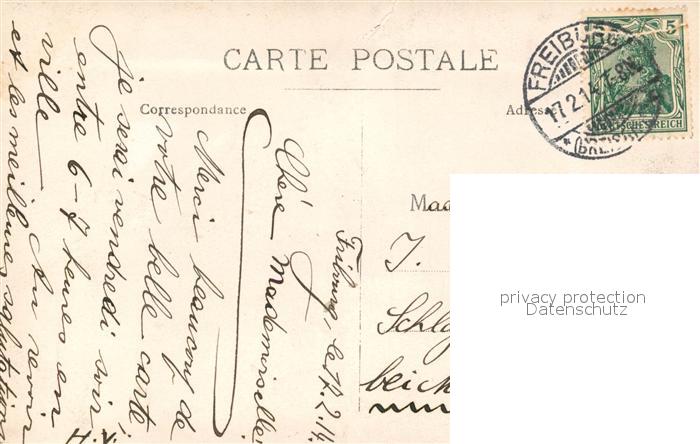 CARTE POSTALE
Correspondance
Adres
FREIBURG
17.2.14.7-8N.
* (BREISG
5
DEUTSCHES REICH
Fribourg, le 17.2.14
Chère Mademoiselle
Merci beaucoup de
votre belle carte
Je serai vendredi soir
entre 6-7 heures en
ville - Au revoir
et les meilleures salutations
Mad
J.
Schlo
beich
privacy protection
Datenschutz